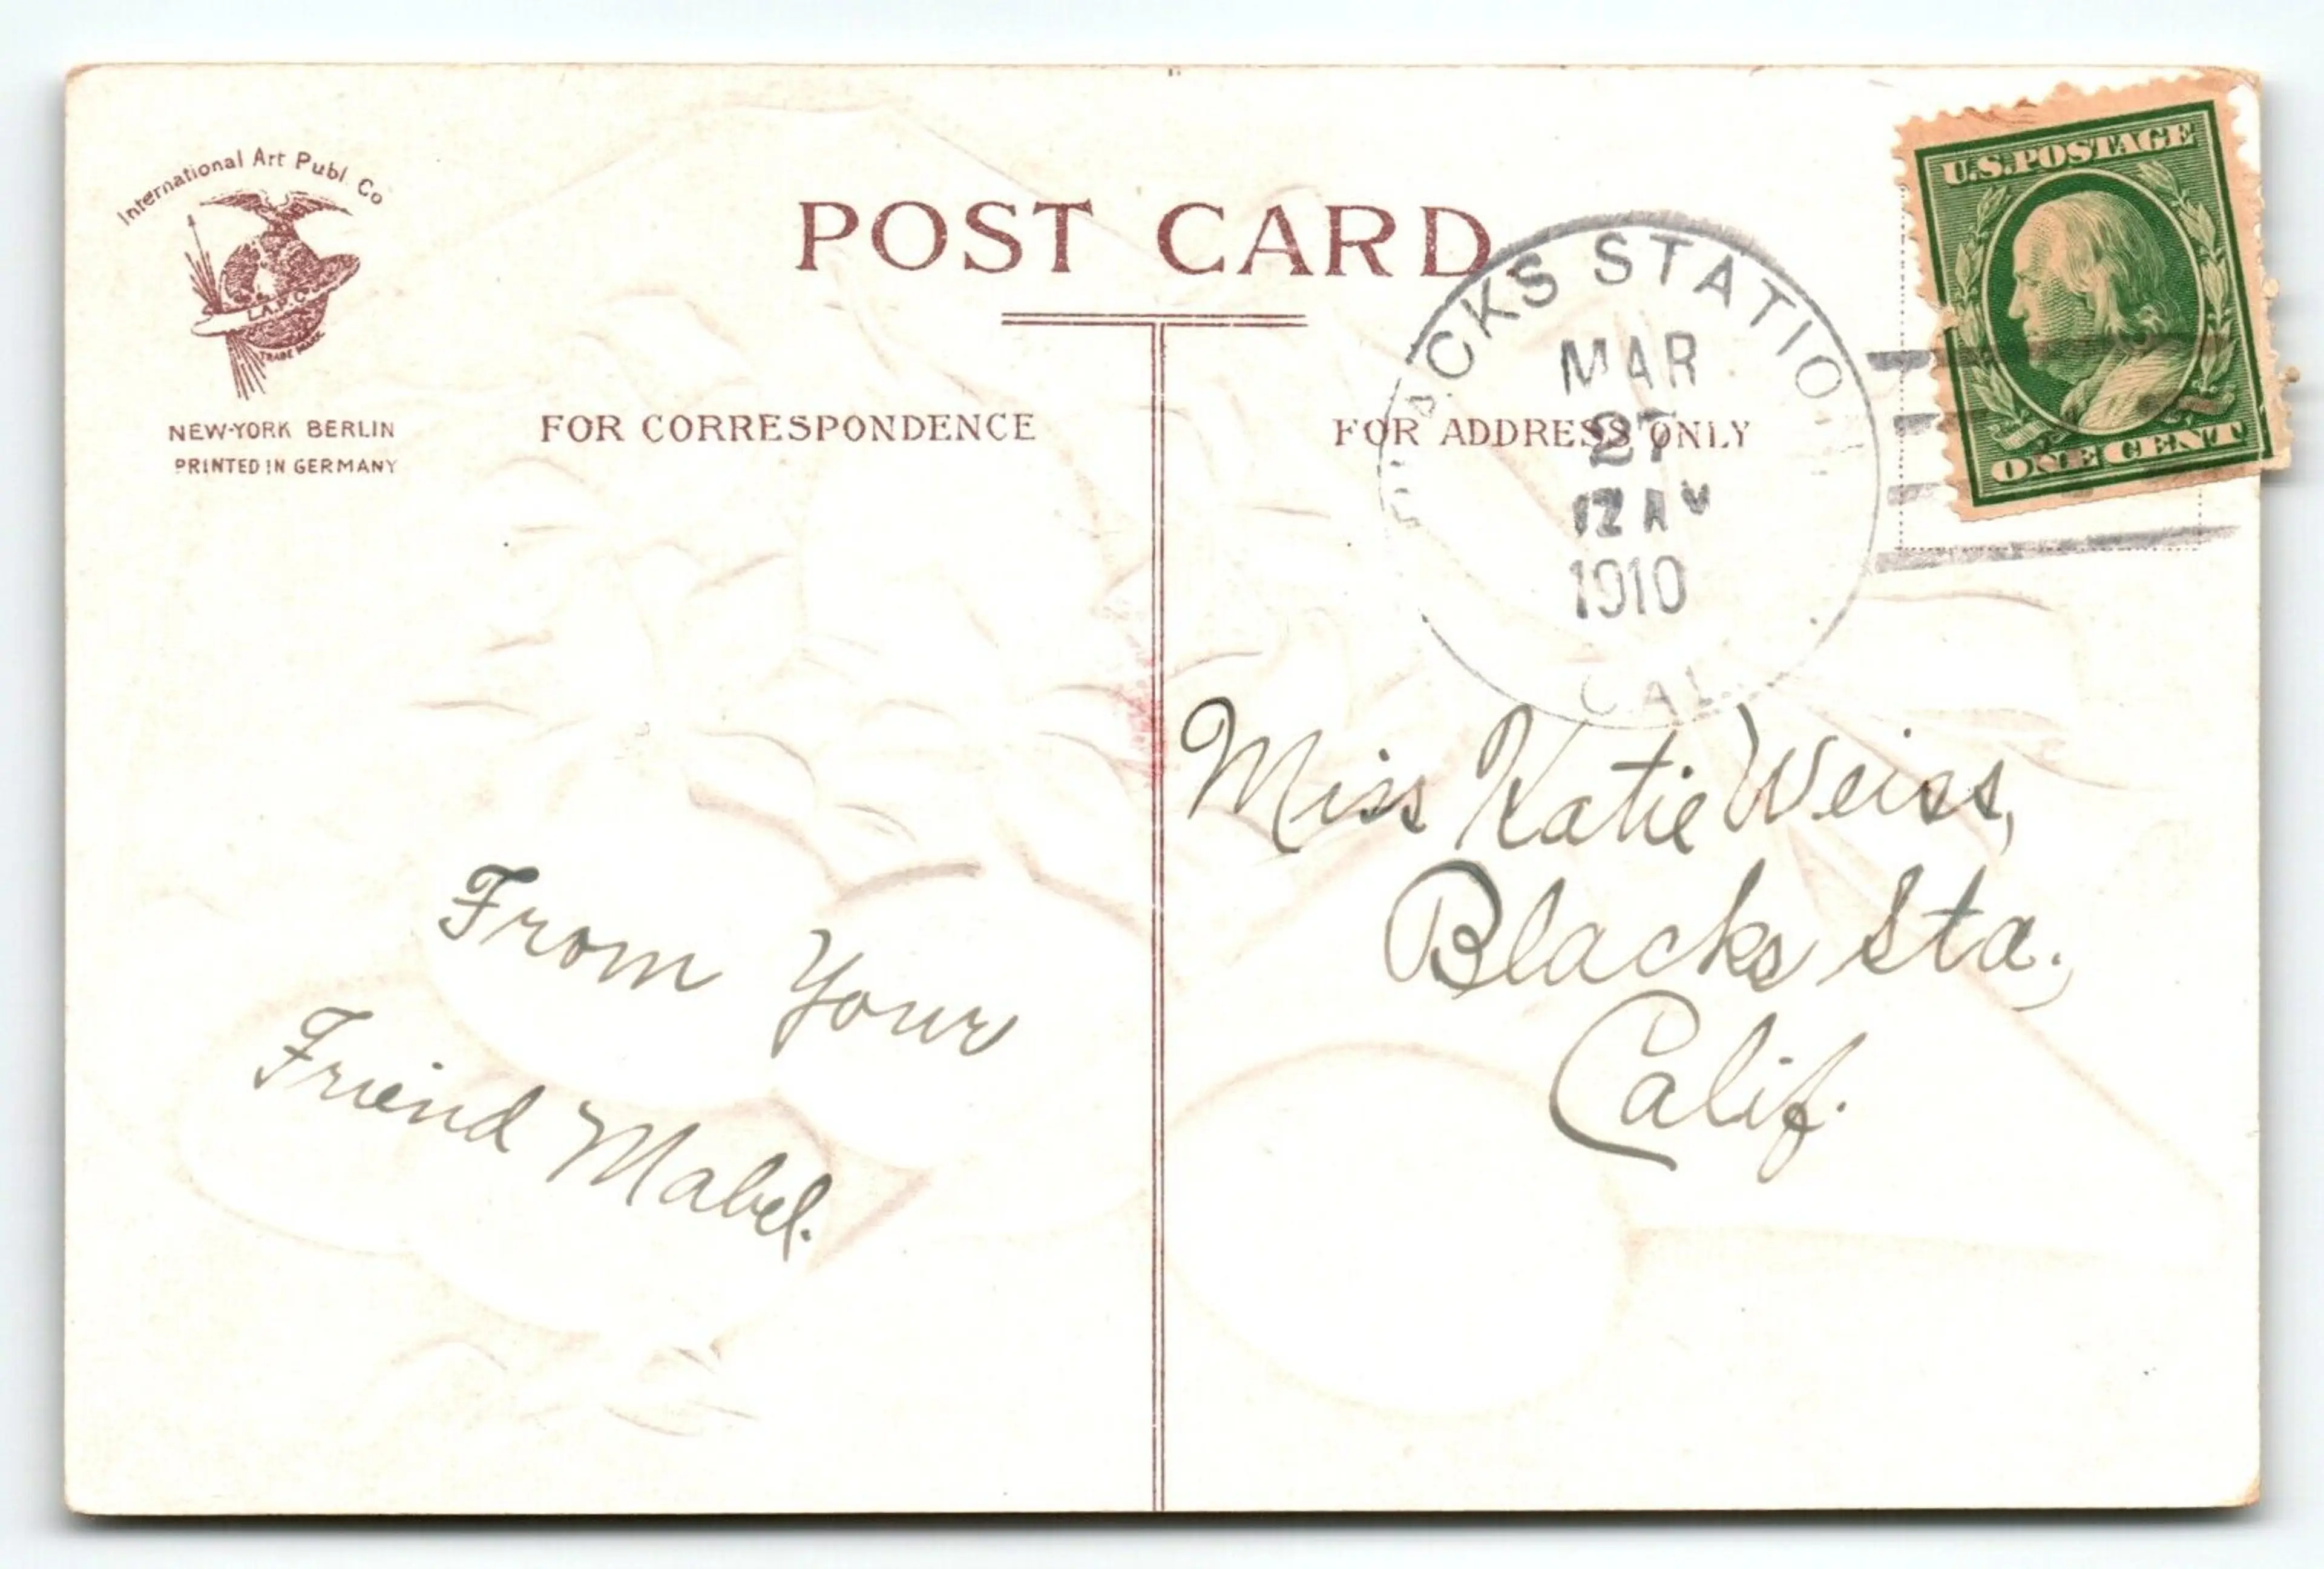 International Art Publ. Co
I.A.P.Co.
TRADE MARK
NEW-YORK BERLIN
PRINTED IN GERMANY
POST CARD
FOR CORRESPONDENCE
FOR ADDRESS ONLY
BLACKS STATION
MAR
27
12 AM
1910
CAL.
U.S. POSTAGE
ONE CENT
From Your
Friend Mabel.
Miss Katie Weiss,
Blacks Sta.,
Calif.